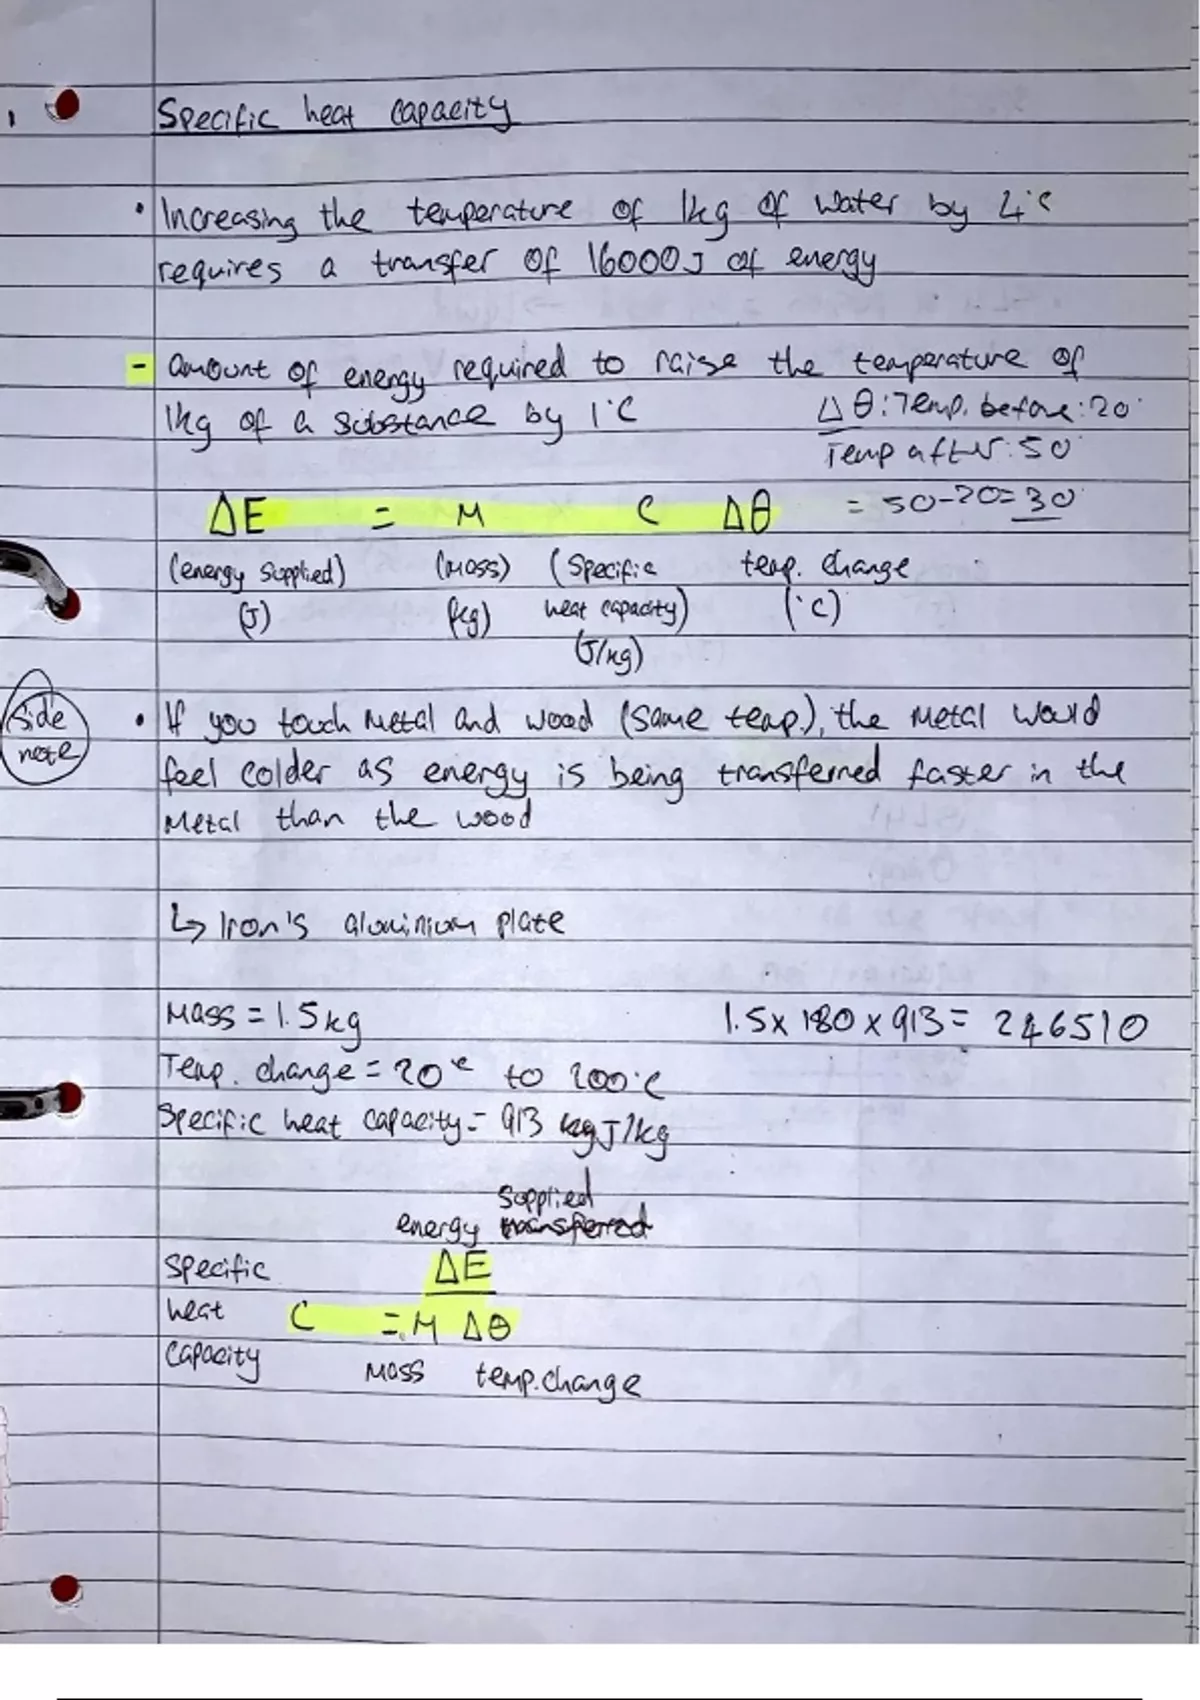 Specific heat capacity
• Increasing the temperature of 1kg of water by 4°C
requires a transfer of 16000J of energy
- Amount of energy required to raise the temperature of
1kg of a substance by 1°C
Δθ: Temp. before: 20°
Temp after: 50°
= 50-20= 30°
ΔE = M C Δθ
(energy supplied) (mass) (Specific temp. change
(J) (kg) heat capacity) (°C)
(J/kg)
Side
note
• If you touch metal and wood (same temp.), the metal would
feel colder as energy is being transferred faster in the
metal than the wood
↳ Iron's aluminium plate
Mass = 1.5kg 1.5 x 180 x 913 = 246510
Temp. change = 20°c to 200°c
Specific heat capacity = 913 J/kg
Supplied
energy transferred
Specific ΔE
heat C = M Δθ
Capacity mass temp. change